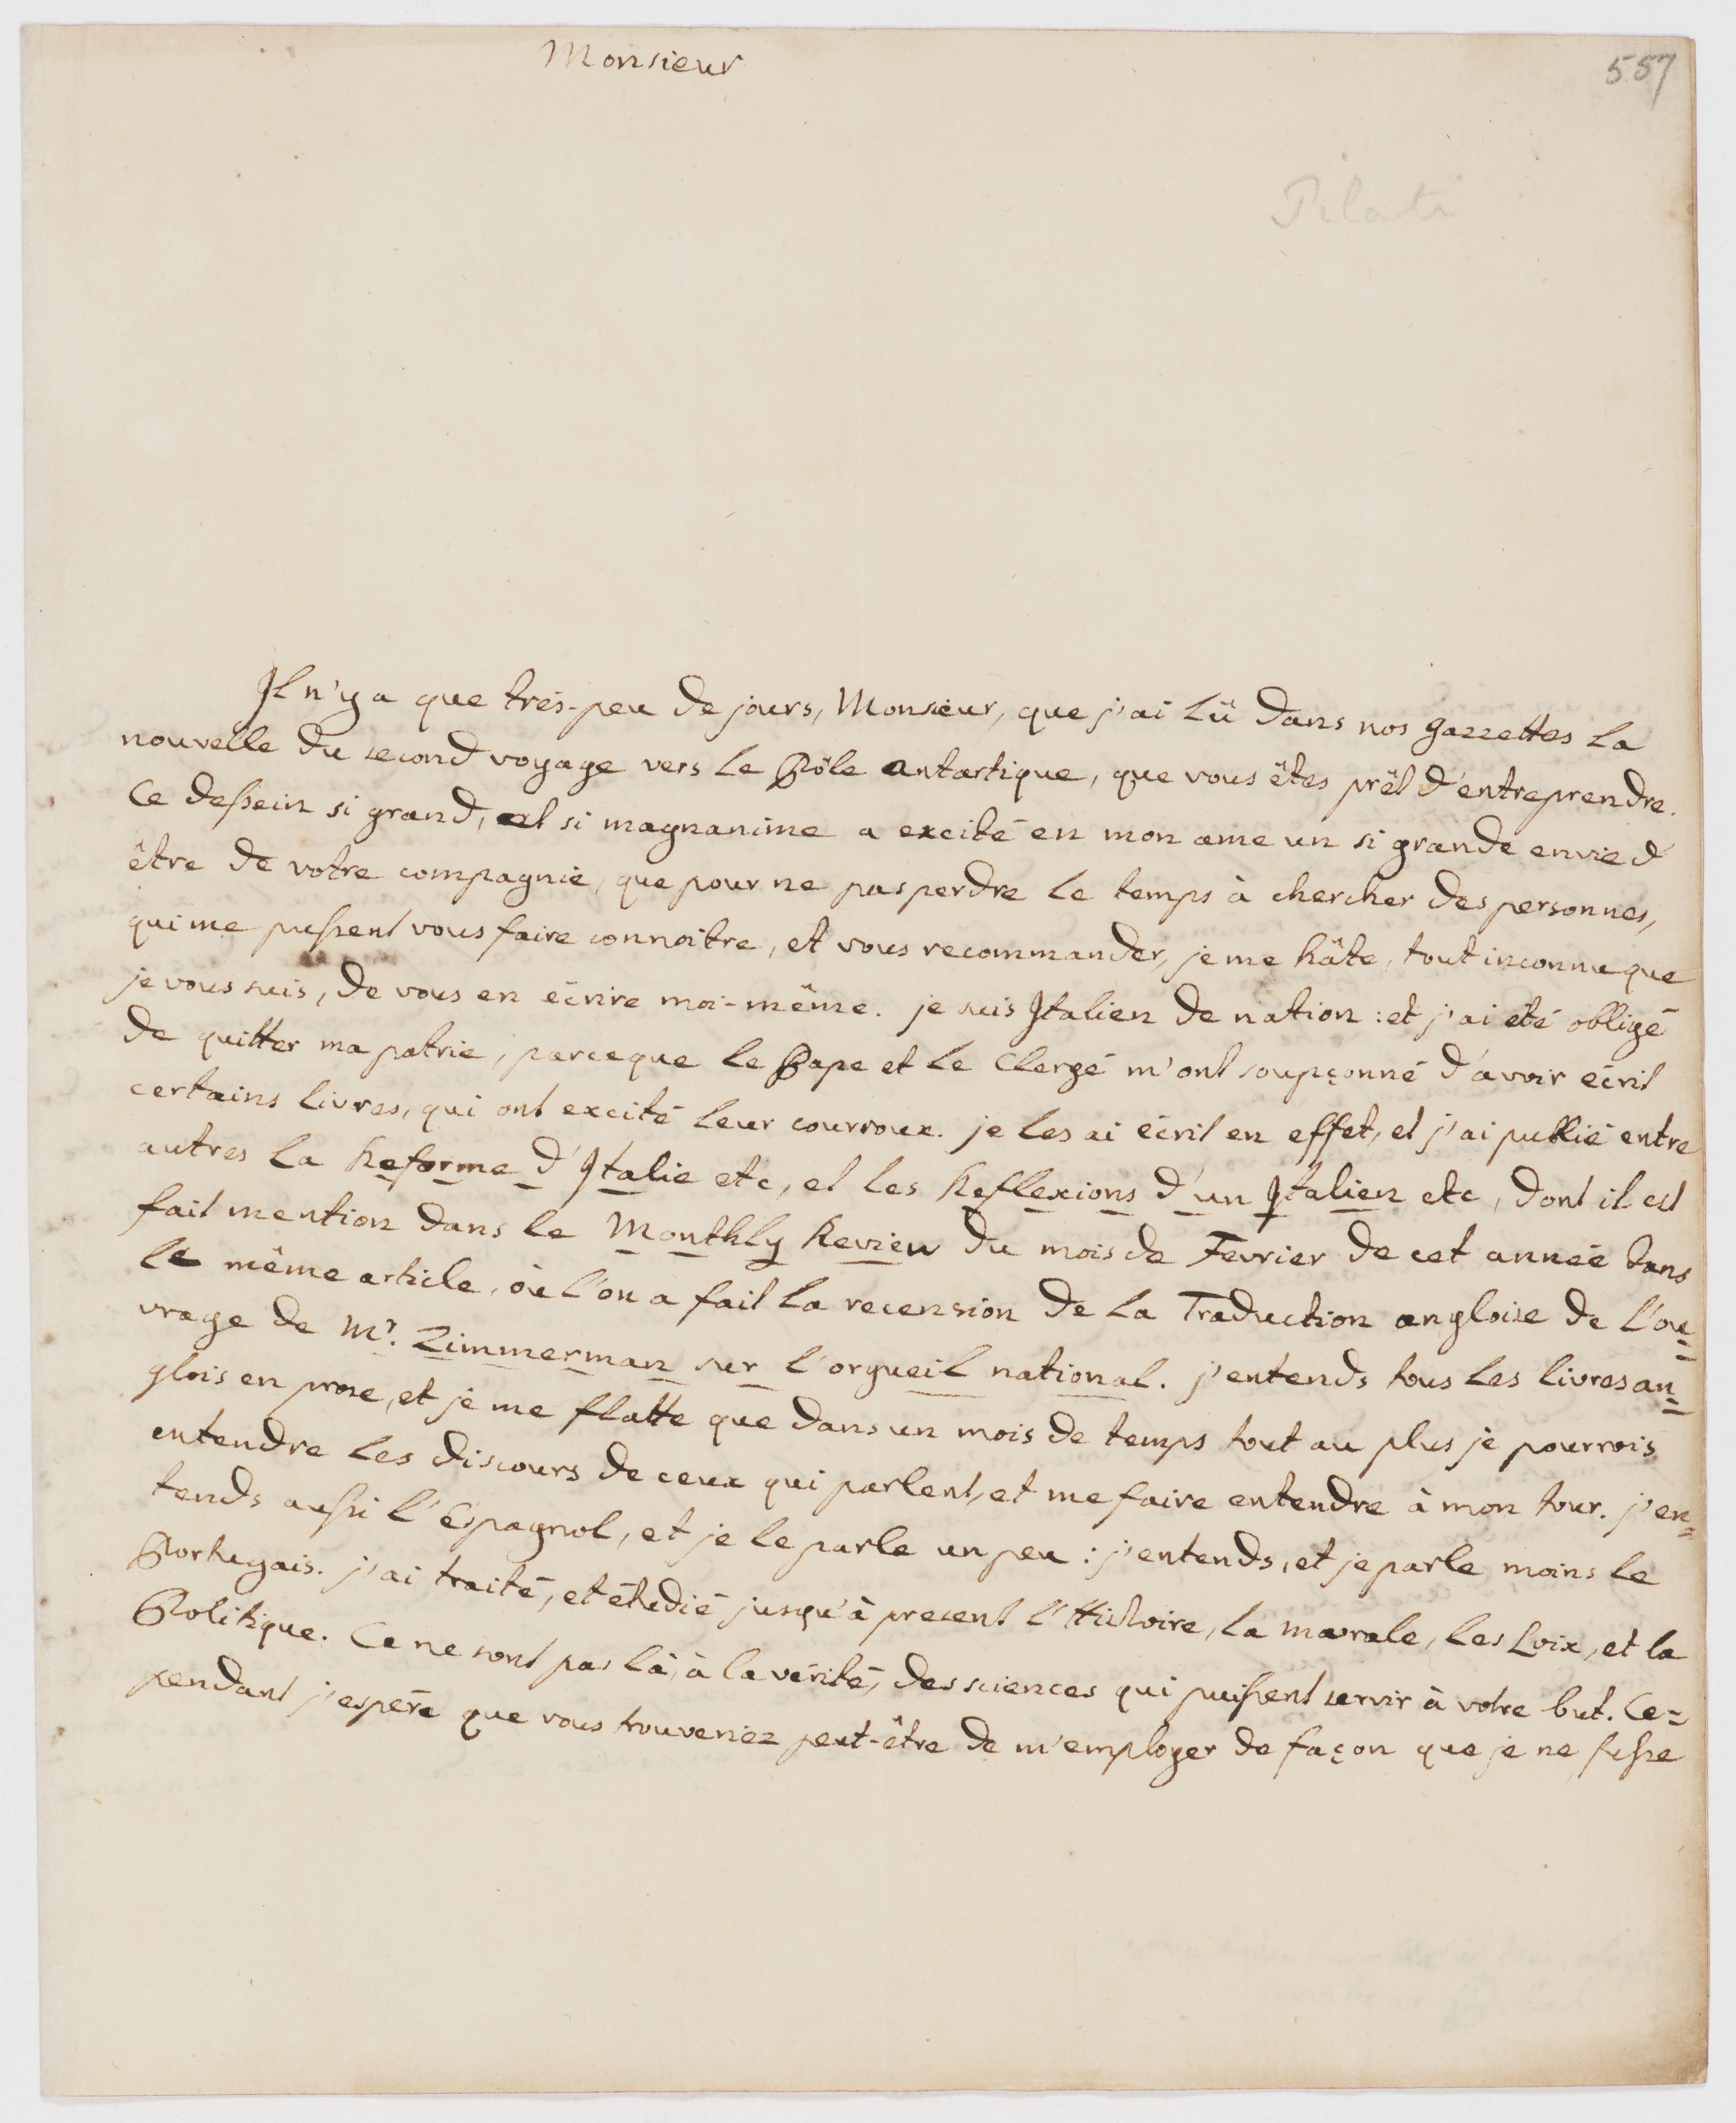 Monsieur
557
Pilati
Il n'y a que trés-peu de jours, Monsieur, que j'ai lû dans nos gazzettes la
nouvelle du second voyage vers le Pôle antartique, que vous êtes prêt d'entreprendre.
Ce dessein si grand, et si magnanime a excité en mon ame un si grande envie d'
être de votre compagnie, que pour ne pas perdre le temps à chercher des personnes,
qui me pussent vous faire connoitre, et vous recommander, je me hâte, tout inconnu que
je vous suis, de vous en écrire moi-même. je suis Italien de nation : et j'ai été obligé
de quitter ma patrie, parceque le Pape et le Clergé m'ont soupçonné d'avoir écrit
certains livres, qui ont excité leur courroux. je les ai écrit en effet, et j'ai publié entre
autres la Reforme d'Italie etc, et les Reflexions d'un Italien etc, dont il est
fait mention dans le Monthly Review du mois de Fevrier de cet année dans
le même article, où l'on a fait la recension de la Traduction angloise de l'ou=
vrage de Mr. Zimmerman sur l'orgueil national. j'entends tous les livres an=
glois en prose, et je me flatte que dans un mois de temps tout au plus je pourrois
entendre les discours de ceux qui parlent, et me faire entendre à mon tour. j'en=
tends aussi l'Espagnol, et je le parle un peu : j'entends, et je parle moins le
Portugais. j'ai traité, et étudié jusqu'à present l'Histoire, la morale, les Loix, et la
Politique. Ce ne sont pas là, à la vérité, des sciences qui puissent servir à votre but. Ce=
pendant j'espére que vous trouveriez peut-être de m'employer de façon que je ne fusse